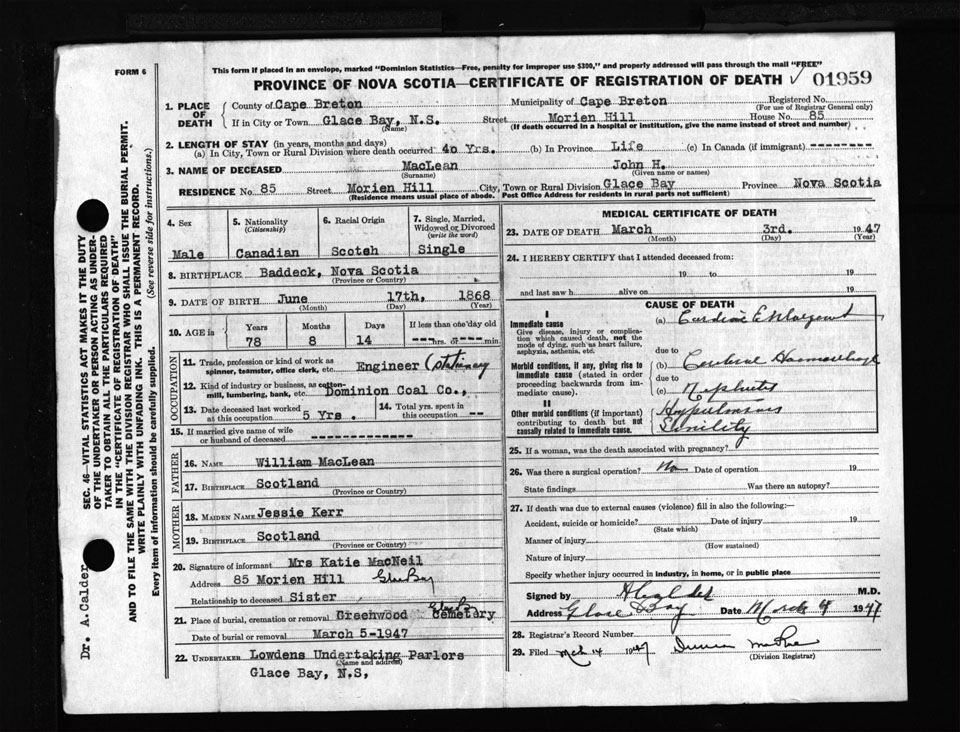 FORM 6
This form if placed in an envelope, marked "Dominion Statistics—Free, penalty for improper use $300," and properly addressed will pass through the mail "FREE"
PROVINCE OF NOVA SCOTIA—CERTIFICATE OF REGISTRATION OF DEATH ✓ 01959
1. PLACE OF DEATH
County of Cape Breton Municipality of Cape Breton Registered No.
(For use of Registrar General only)
If in City or Town Glace Bay, N.S. Street Morien Hill House No. 85
(Name) (If death occurred in a hospital or institution, give the name instead of street and number)
2. LENGTH OF STAY (in years, months and days)
(a) In City, Town or Rural Division where death occurred 40 Yrs. (b) In Province Life (c) In Canada (if immigrant) -------
3. NAME OF DECEASED MacLean John H.
(Surname) (Given name or names)
RESIDENCE No. 85 Street Morien Hill City, Town or Rural Division Glace Bay Province Nova Scotia
(Residence means usual place of abode. Post Office Address for residents in rural parts not sufficient)
4. Sex
Male
5. Nationality
(Citizenship)
Canadian
6. Racial Origin
Scotch
7. Single, Married, Widowed or Divorced
(write the word)
Single
8. BIRTHPLACE Baddeck, Nova Scotia
(Province or Country)
9. DATE OF BIRTH June 17th, 1868
(Month) (Day) (Year)
10. AGE in
Years Months Days If less than one day old
78 8 14 ---hrs. or ---min.
OCCUPATION
11. Trade, profession or kind of work as spinner, teamster, office clerk, etc. Engineer (Stationary
12. Kind of industry or business, as cotton-mill, lumbering, bank, etc. Dominion Coal Co.,
13. Date deceased last worked at this occupation 5 Yrs.
14. Total yrs. spent in this occupation --
15. If married give name of wife or husband of deceased ------------
FATHER
16. NAME William MacLean
17. BIRTHPLACE Scotland
(Province or Country)
MOTHER
18. MAIDEN NAME Jessie Kerr
19. BIRTHPLACE Scotland
(Province or Country)
20. Signature of informant Mrs Katie MacNeil
Address 85 Morien Hill Glace Bay
Relationship to deceased Sister
21. Place of burial, cremation or removal Greenwood Cemetery
Date of burial or removal March 5-1947
22. UNDERTAKER Lowdens Undertaking Parlors
(Name and address)
Glace Bay, N.S,
MEDICAL CERTIFICATE OF DEATH
23. DATE OF DEATH March 3rd. 1947
(Month) (Day) (Year)
24. I HEREBY CERTIFY that I attended deceased from:
19 to 19
and last saw h alive on 19
CAUSE OF DEATH
I
Immediate cause
Give disease, injury or complication which caused death, not the mode of dying, such as heart failure, asphyxia, asthenia, etc.
(a) Cardiac Enlargement
due to
Morbid conditions, if any, giving rise to immediate cause (stated in order proceeding backwards from immediate cause).
(b) Cerebral Haemorrhage
due to
(c) Nephritis
II
Other morbid conditions (if important) contributing to death but not causally related to immediate cause.
Senility
25. If a woman, was the death associated with pregnancy?
26. Was there a surgical operation? No Date of operation 19
State findings Was there an autopsy?
27. If death was due to external causes (violence) fill in also the following:—
Accident, suicide or homicide? Date of injury 19
(State which)
Manner of injury
(How sustained)
Nature of injury
Specify whether injury occurred in industry, in home, or in public place
Signed by M.D.
Address Glace Bay Date March 4 1947
28. Registrar's Record Number
29. Filed Mch 14 1947 Duncan
(Division Registrar)
SEC. 46—VITAL STATISTICS ACT MAKES IT THE DUTY
OF THE UNDERTAKER OR PERSON ACTING AS UNDER-
TAKER TO OBTAIN ALL THE PARTICULARS REQUIRED
IN THE "CERTIFICATE OF REGISTRATION OF DEATH"
AND TO FILE THE SAME WITH THE DIVISION REGISTRAR WHO SHALL ISSUE THE BURIAL PERMIT.
WRITE PLAINLY WITH UNFADING INK. THIS IS A PERMANENT RECORD.
Every item of information should be carefully supplied. (See reverse side for instructions.)
Dr. A. Calder